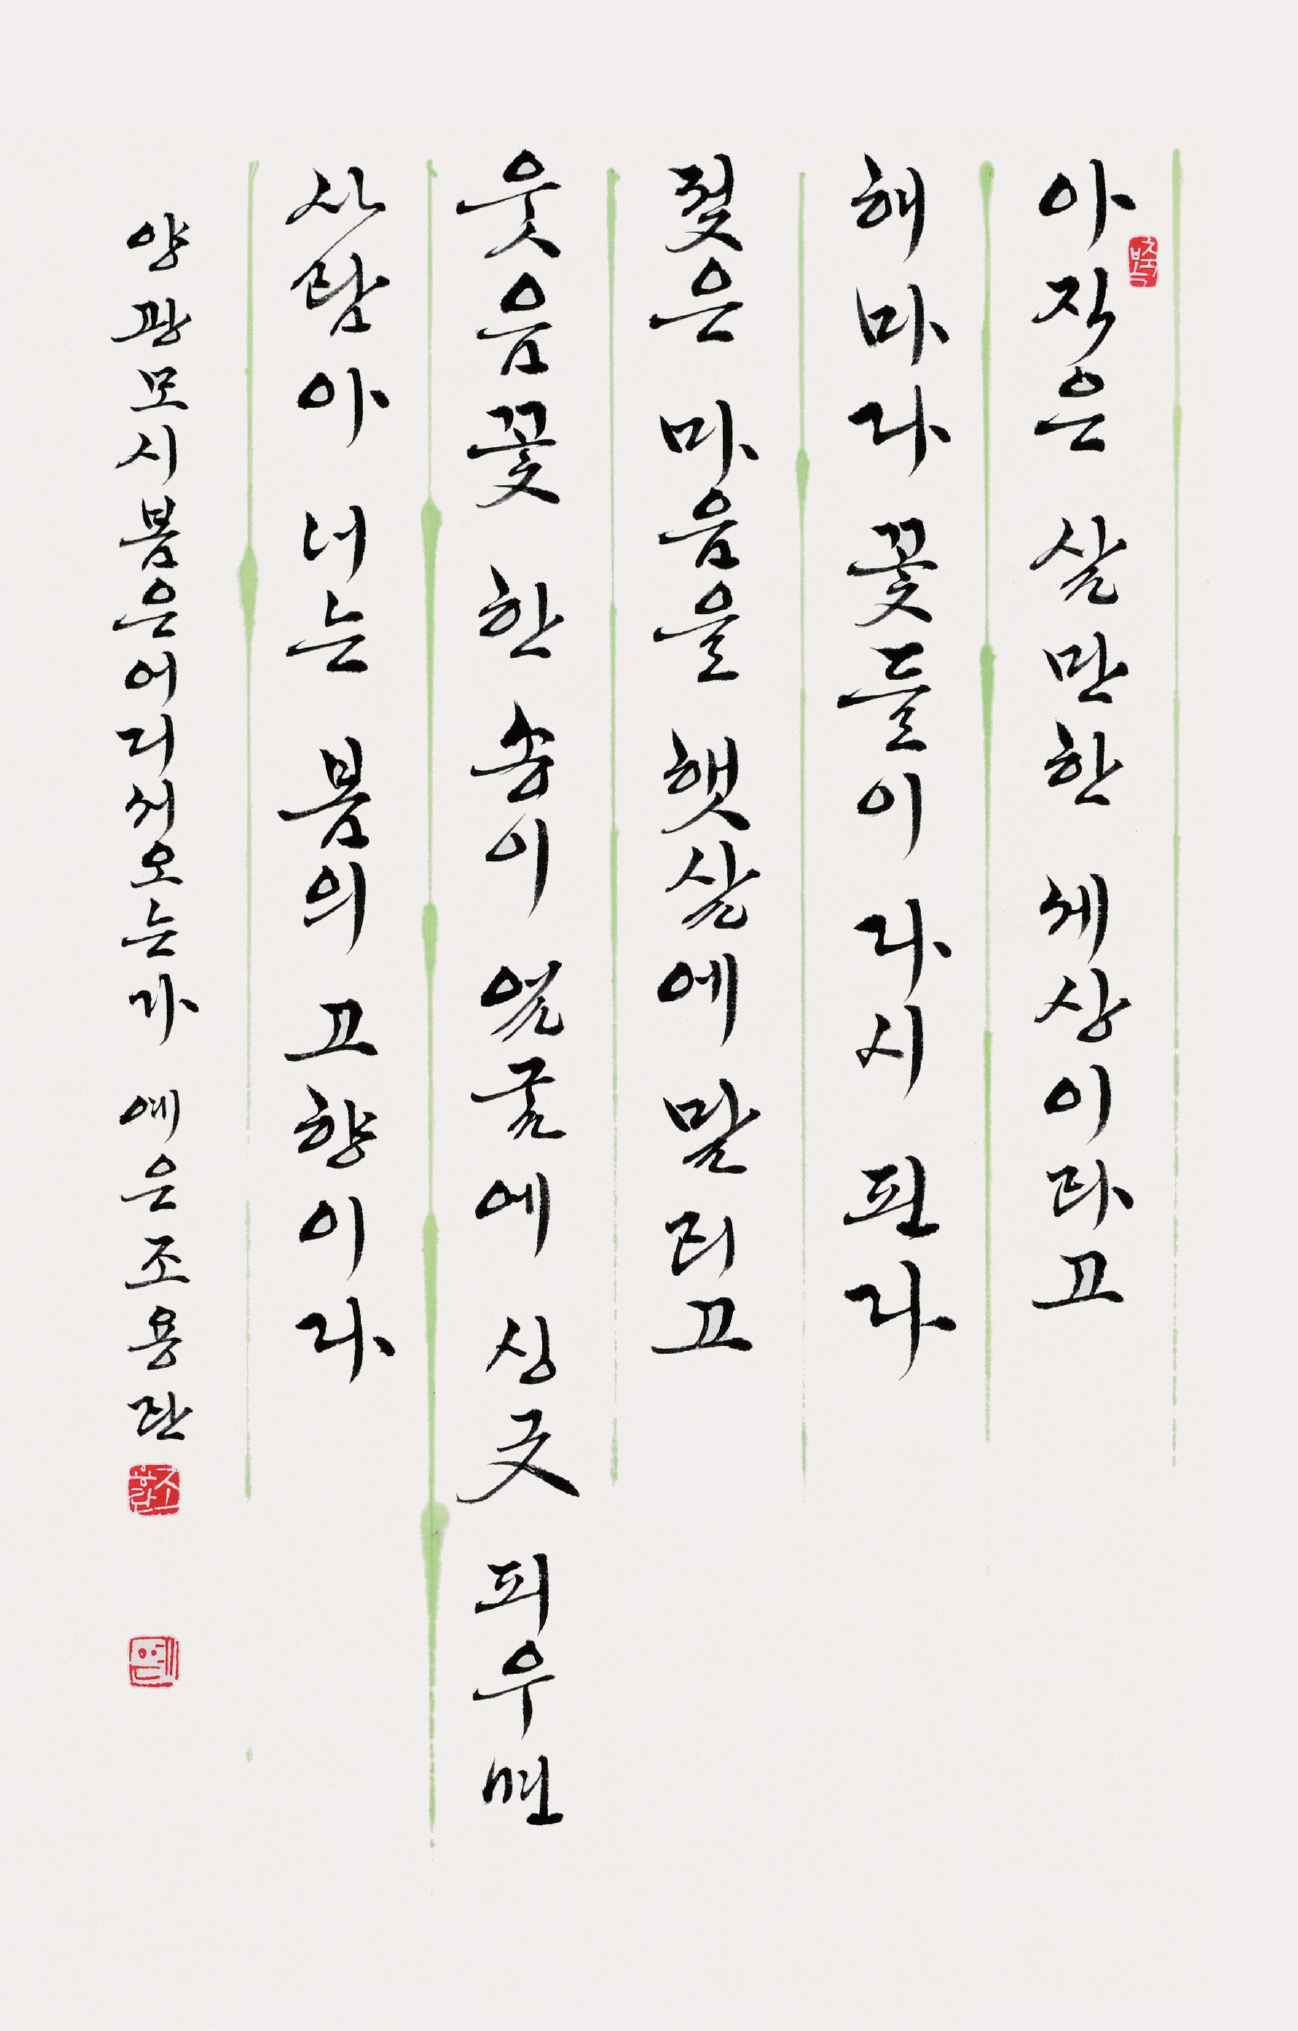 아직은 살만한 세상이라고
해마다 꽃들이 다시 핀다
젖은 마음을 햇살에 말리고
웃음꽃 한 송이 얼굴에 싱긋 피우면
사람아 너는 봄의 고향이다
양광모시봄은어디서오는가 예은조용란